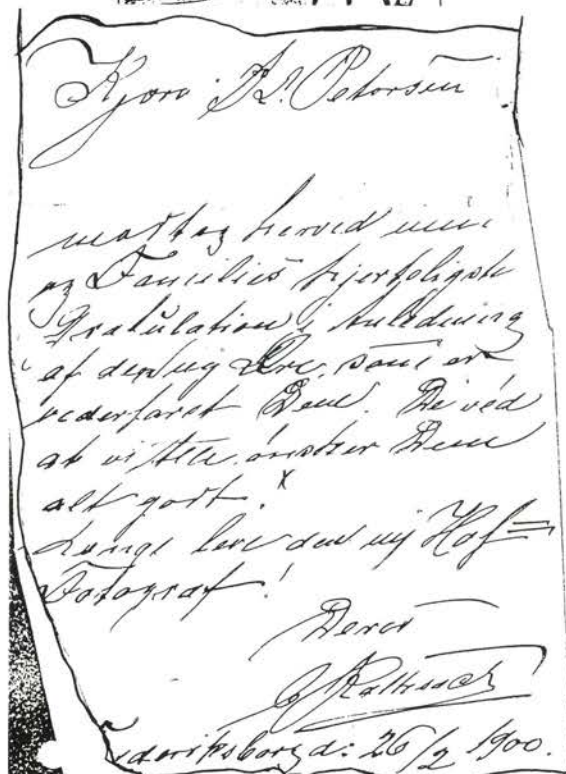 Kjære Hr. Petersen
modtag herved min
og Families hjerteligste
Gratulation i Anledning
af den ny Ære, som er
vederfaret Dem. De véd
at vi Alle ønsker Dem
alt godt. x
Længe leve den ny Hof=
Fotograf!
Deres
Frederiksborg d: 26/2 1900.